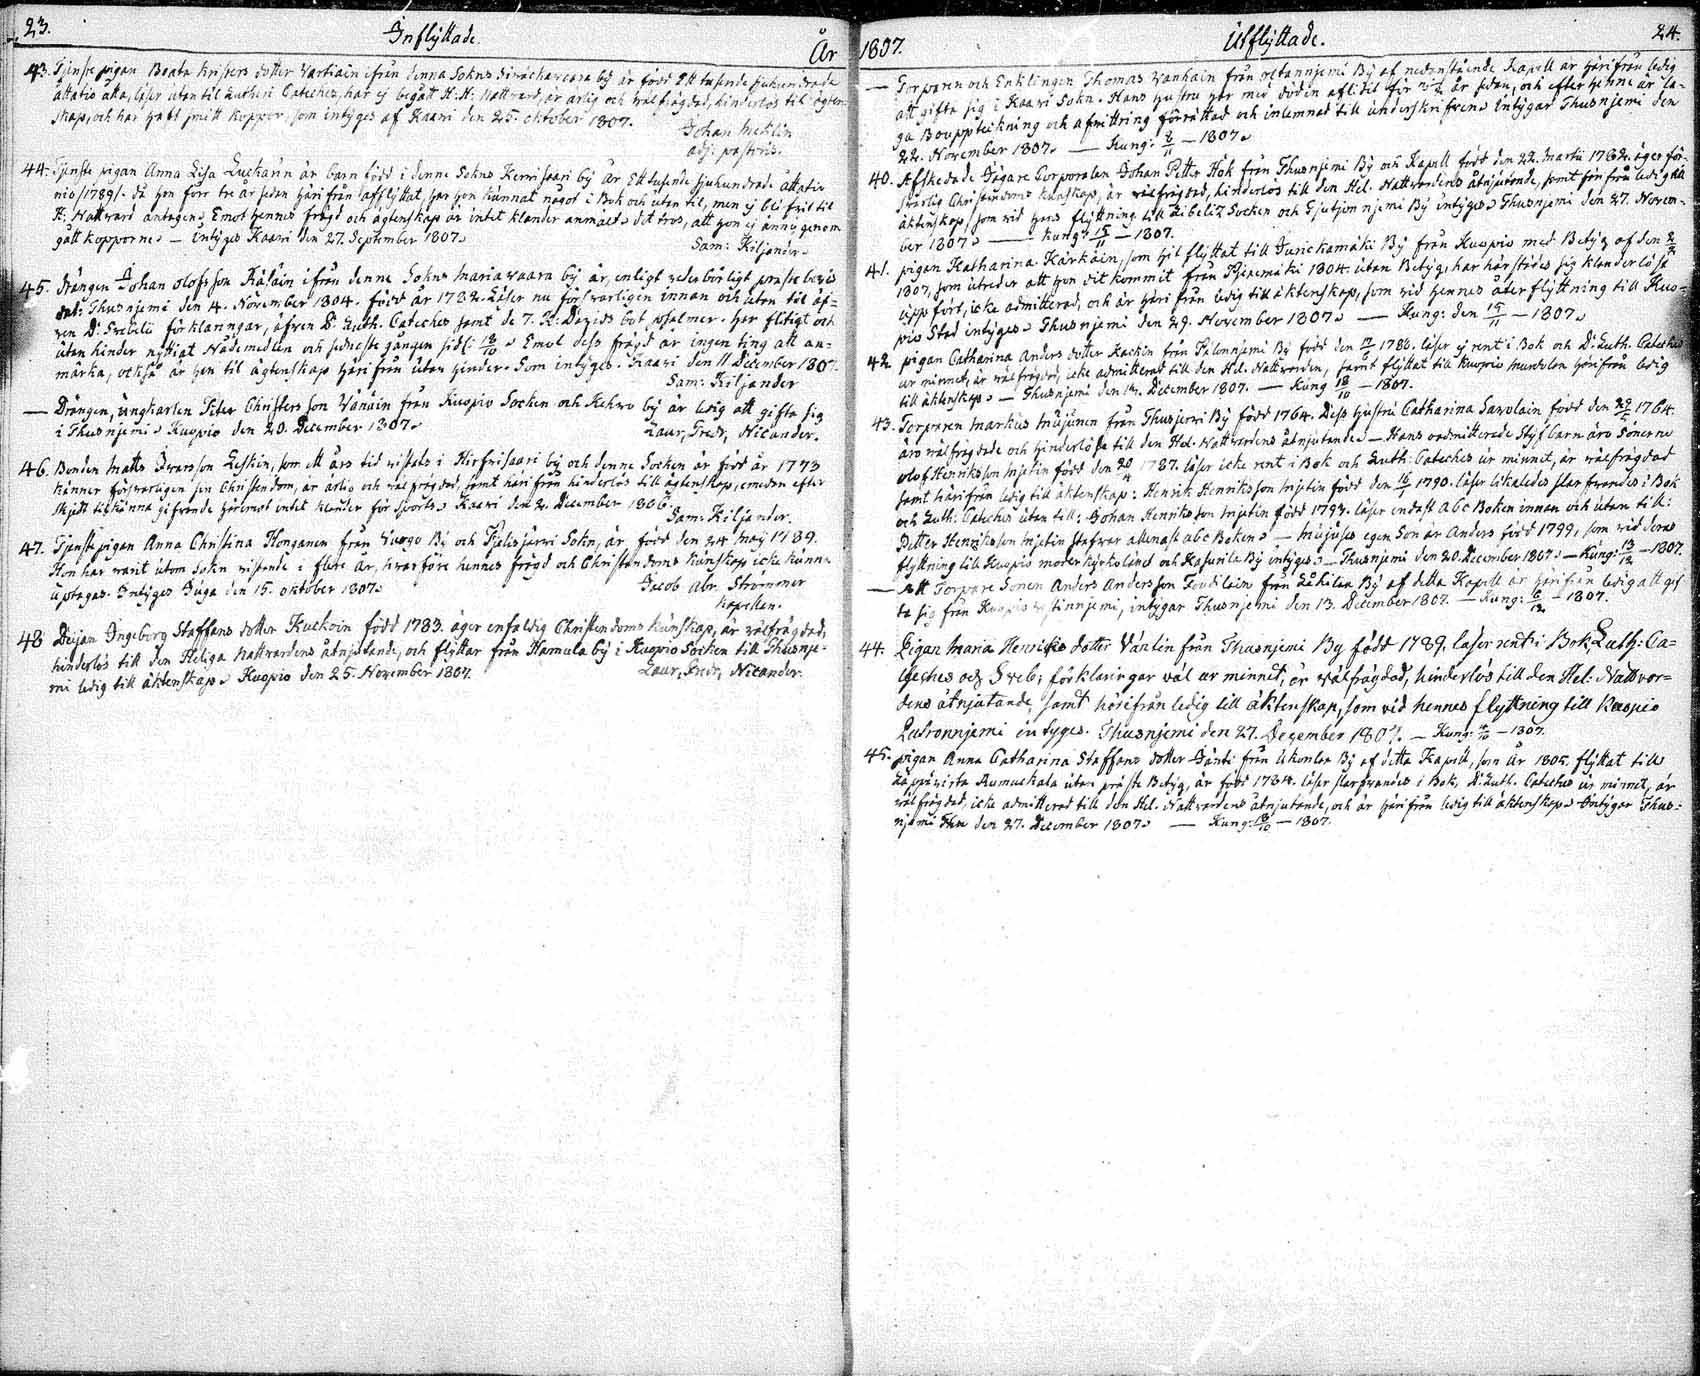 23.
Inflÿttade.
År
43. Tjenste pigan Beata Kristers dotter Vartiain ifrån denna Sokns by är född Ett tusende sjuhundrade
åttatio åtta, läser utan til Lutheri Cateches, har ej begått H. H. Nattvard, är ärlig och välfrägdad, hinderlös til ägten-
skap, och har haft koppor, som intÿges af Kaavi den 25. oktober 1807.
Johan Meklin
adj: pastoris.
44. Tjenste pigan Anna Lisa Luckarin är barn född i denne Sokns Kervisaari bÿ År Ett tusende sjuhundrade åttatio
nio /1789/. då hon förr tre år sedan härifrån afflÿttat, har hon kunnat något i Bok och utan til, men ej blifvit til
H. Nattvard antagen. Emot hennes frägd och ägtenskap är intet klander anmält. det tros, att hon ej ännu genom
gått kopporne. — Intÿges Kaavi den 27. September 1807.
Sam: Kiljander.
45. Drängen Johan olofsson Räsäin ifrån denne Sokns Mariavaara bÿ är, enligt vederbörligt präste bevis
dat: Thusnjemi den 4. November 1804. född år 1782. Läser nu försvarligen innan och utan til äf-
ven D: Svebelii förklaringar, äfven D: Luth. Cateches samt de 7. K: Davids bot psalmer. har flitigt och
utan hinder nyttjat Nådemedlen och sednaste gången sidl: 18/10. Emot dess frägd är ingen ting att an-
märka, också är han til ägtenskap härifrån utan hinder. Som intÿges. Kaavi den 11 December 1807.
Sam: Kiljander
— Drängen, ungkarlen Peter Christersson Vänäin från Kuopio Socken och Kehvo bÿ är ledig att gifta sig
i Thusnjemi. Kuopio den 20. December 1807.
Laur, Fredr, Nicander.
46. Bonden Matts Ivarsson Leskin, som ett års tid vistats i Hirfvisaari bÿ och denne Socken är född år 1773
känner försvarligen sin Christendom, är ärlig och välfrägdad, samt härifrån hinderlös till ägtenskap, emedan efter
skjett tilkänna gifvande häremot intet klander förspordts. Kaavi den 2. December 1806.
Sam: Kiljander.
47. Tjenste pigan Anna Christina Honganen från Vuogo Bÿ och Pjelisjärvi Sokn, är född den 24 Maÿ 1789.
Hon har varit utom Sokn vistande i flere år, hvarföre hennes frägd och Christendoms kunskap icke kunna
uptagas. Intÿges Juga den 15. oktober 1807.
Jacob Abr. Strömmer
Kapellan.
48 Pigan Ingeborg Staffans dotter Kuckoin född 1783. äger enfaldig Christendoms kunskap, är välfrägdad,
hinderlös till den Heliga Nattvardens åtnjutande, och flÿttar från Hamula bÿ i Kuopio Socken till Thusnje-
mi ledig till äktenskap. Kuopio den 25. November 1807.
Laur, Fredr, Nicander.
1807.
Utflÿttade.
24.
— Torparen och Enklingen Thomas Vanhain från Bÿ af nedanstående Kapell är härifrån ledig
att gifta sig i Kaavi Sokn. Hans hustru har med döden aflidit för år sedan, och efter henne är la-
ga Bouppteckning och afvittring förrättad och inlemnad till underskrifven. Intÿgar Thusnjemi den
22. November 1807. — Kung: 8/11 — 1807.
40. Afskedade Jägare Corporalen Johan Petter Hök från Thusnjemi Bÿ och Kapell född den 22. Martii 1762. äger för-
svarlig Christendoms kunskap, är välfrägdad, hinderlös till den Hel. Nattvardens åtnjutande, samt härifrån ledig till
äktenskap, som vid hans flÿttning till Libelitz Socken och Bÿ intÿges. Thusnjemi den 27. Novem-
ber 1807. — Kung: 15/11 — 1807.
41. pigan Katharina Kärkäin, som hit flÿttat till Jurickamäki Bÿ från Kuopio med Betÿg af den
1807, som utreder att hon dit kommit från 1804. utan Betÿg, har härstädes sig klanderlöst
uppfört, icke admitterad, och är härifrån ledig till äktenskap, som vid hennes återflÿttning till Kuo-
pio Stad intÿges. Thusnjemi den 29. November 1807. — Kung: den 15/11 — 1807.
42. pigan Catharina Anders dotter Hackin från Palonnjemi Bÿ född den 1786. läser ej rent i Bok och D: Luth. Cateches
ur minnet, är välfrägdad, icke admitterad till den Hel. Nattvarden, samt flÿttat till Kuopio härifrån ledig
till äktenskap. — Thusnjemi den 14. December 1807. — Kung 18/10 — 1807.
43. Torparen Markus Mujunen från Thusjervi Bÿ född 1764. Dess hustru Catharina Savolain född den 1764.
äro välfrägdade och hinderlöse till den Hel. Nattvardens åtnjutande. — Hans oadmitterade Stÿfbarn äro Sönerne
olof Henriksson född den 1787. läser icke rent i Bok och Luth: Cateches ur minnet, är välfrägdad
samt härifrån ledig till äktenskap: Henrik Henriksson född den 1790. läser likaledes slarfvandes i Bok
och Luth: Cateches utan till; Johan Henriksson född 1793. läser endast abc Boken innan och utan till:
Petter Henriksson stafvar allenast abc Boken. — Mujuses egen Son är Anders född 1799, som vid deras
flÿttning till Kuopio moderkÿrkoland och Kasurila Bÿ intÿges. — Thusnjemi den 20. December 1807. — Kung: 13/12 — 1807.
— Att Torpare Sonen Anders Andersson från Bÿ af detta Kapell är härifrån ledig att gif-
ta sig från Kuopio intÿgar Thusnjemi den 13. December 1807. — Kung: 6/12 — 1807.
44. Pigan Maria Henriks dotter Väntin från Thusnjemi By född 1789. läser rent i Bok, Luth. Ca-
teches och Sveb: förklaringar väl ur minnet, är välfrägdad, hinderlös till den Hel: Nattvar-
dens åtnjutande, samt härifrån ledig till äktenskap, som vid hennes flyttning till Kuopio
intyges. Thusnjemi den 27. Dezember 1807. — Kung: 4/10 — 1807.
45. pigan Anna Catharina Staffans dotter Jänti från Ukonlax Bÿ af detta Kapell, som år 1805. flÿttat till
Leppävirta utan präste Betÿg, är född 1784. läser slarfvandes i Bok, D: Luth. Cateches ur minnet, är
välfrägdad, icke admitterad till den Hel. Nattvardens åtnjutande, och är härifrån ledig till äktenskap. Intÿgar Thus-
njemi den 27. December 1807. — Kung: 18/10 — 1807.